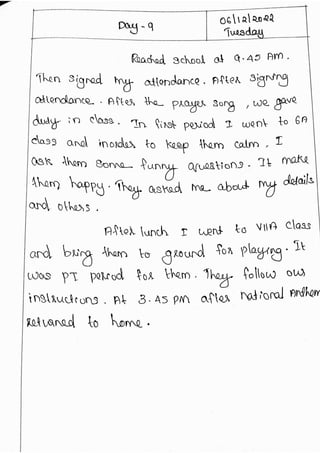 Day - 9
06/12/2022
Tuesday
Reached school at 9.45 Am.
Then signed my attondance. After signing
attendance. After the prayer song, we gave
duty in class. In first period I went to 6A
class and inorder to keep them calm, I
ask them some funny questions. It make
them happy. They asked me about my details
and others.
After lunch I went to VIIA class
and bring them to ground for playing. It
was PT period for them. They follow our
instructions. At 3.45 PM after national Anthem
returned to home.